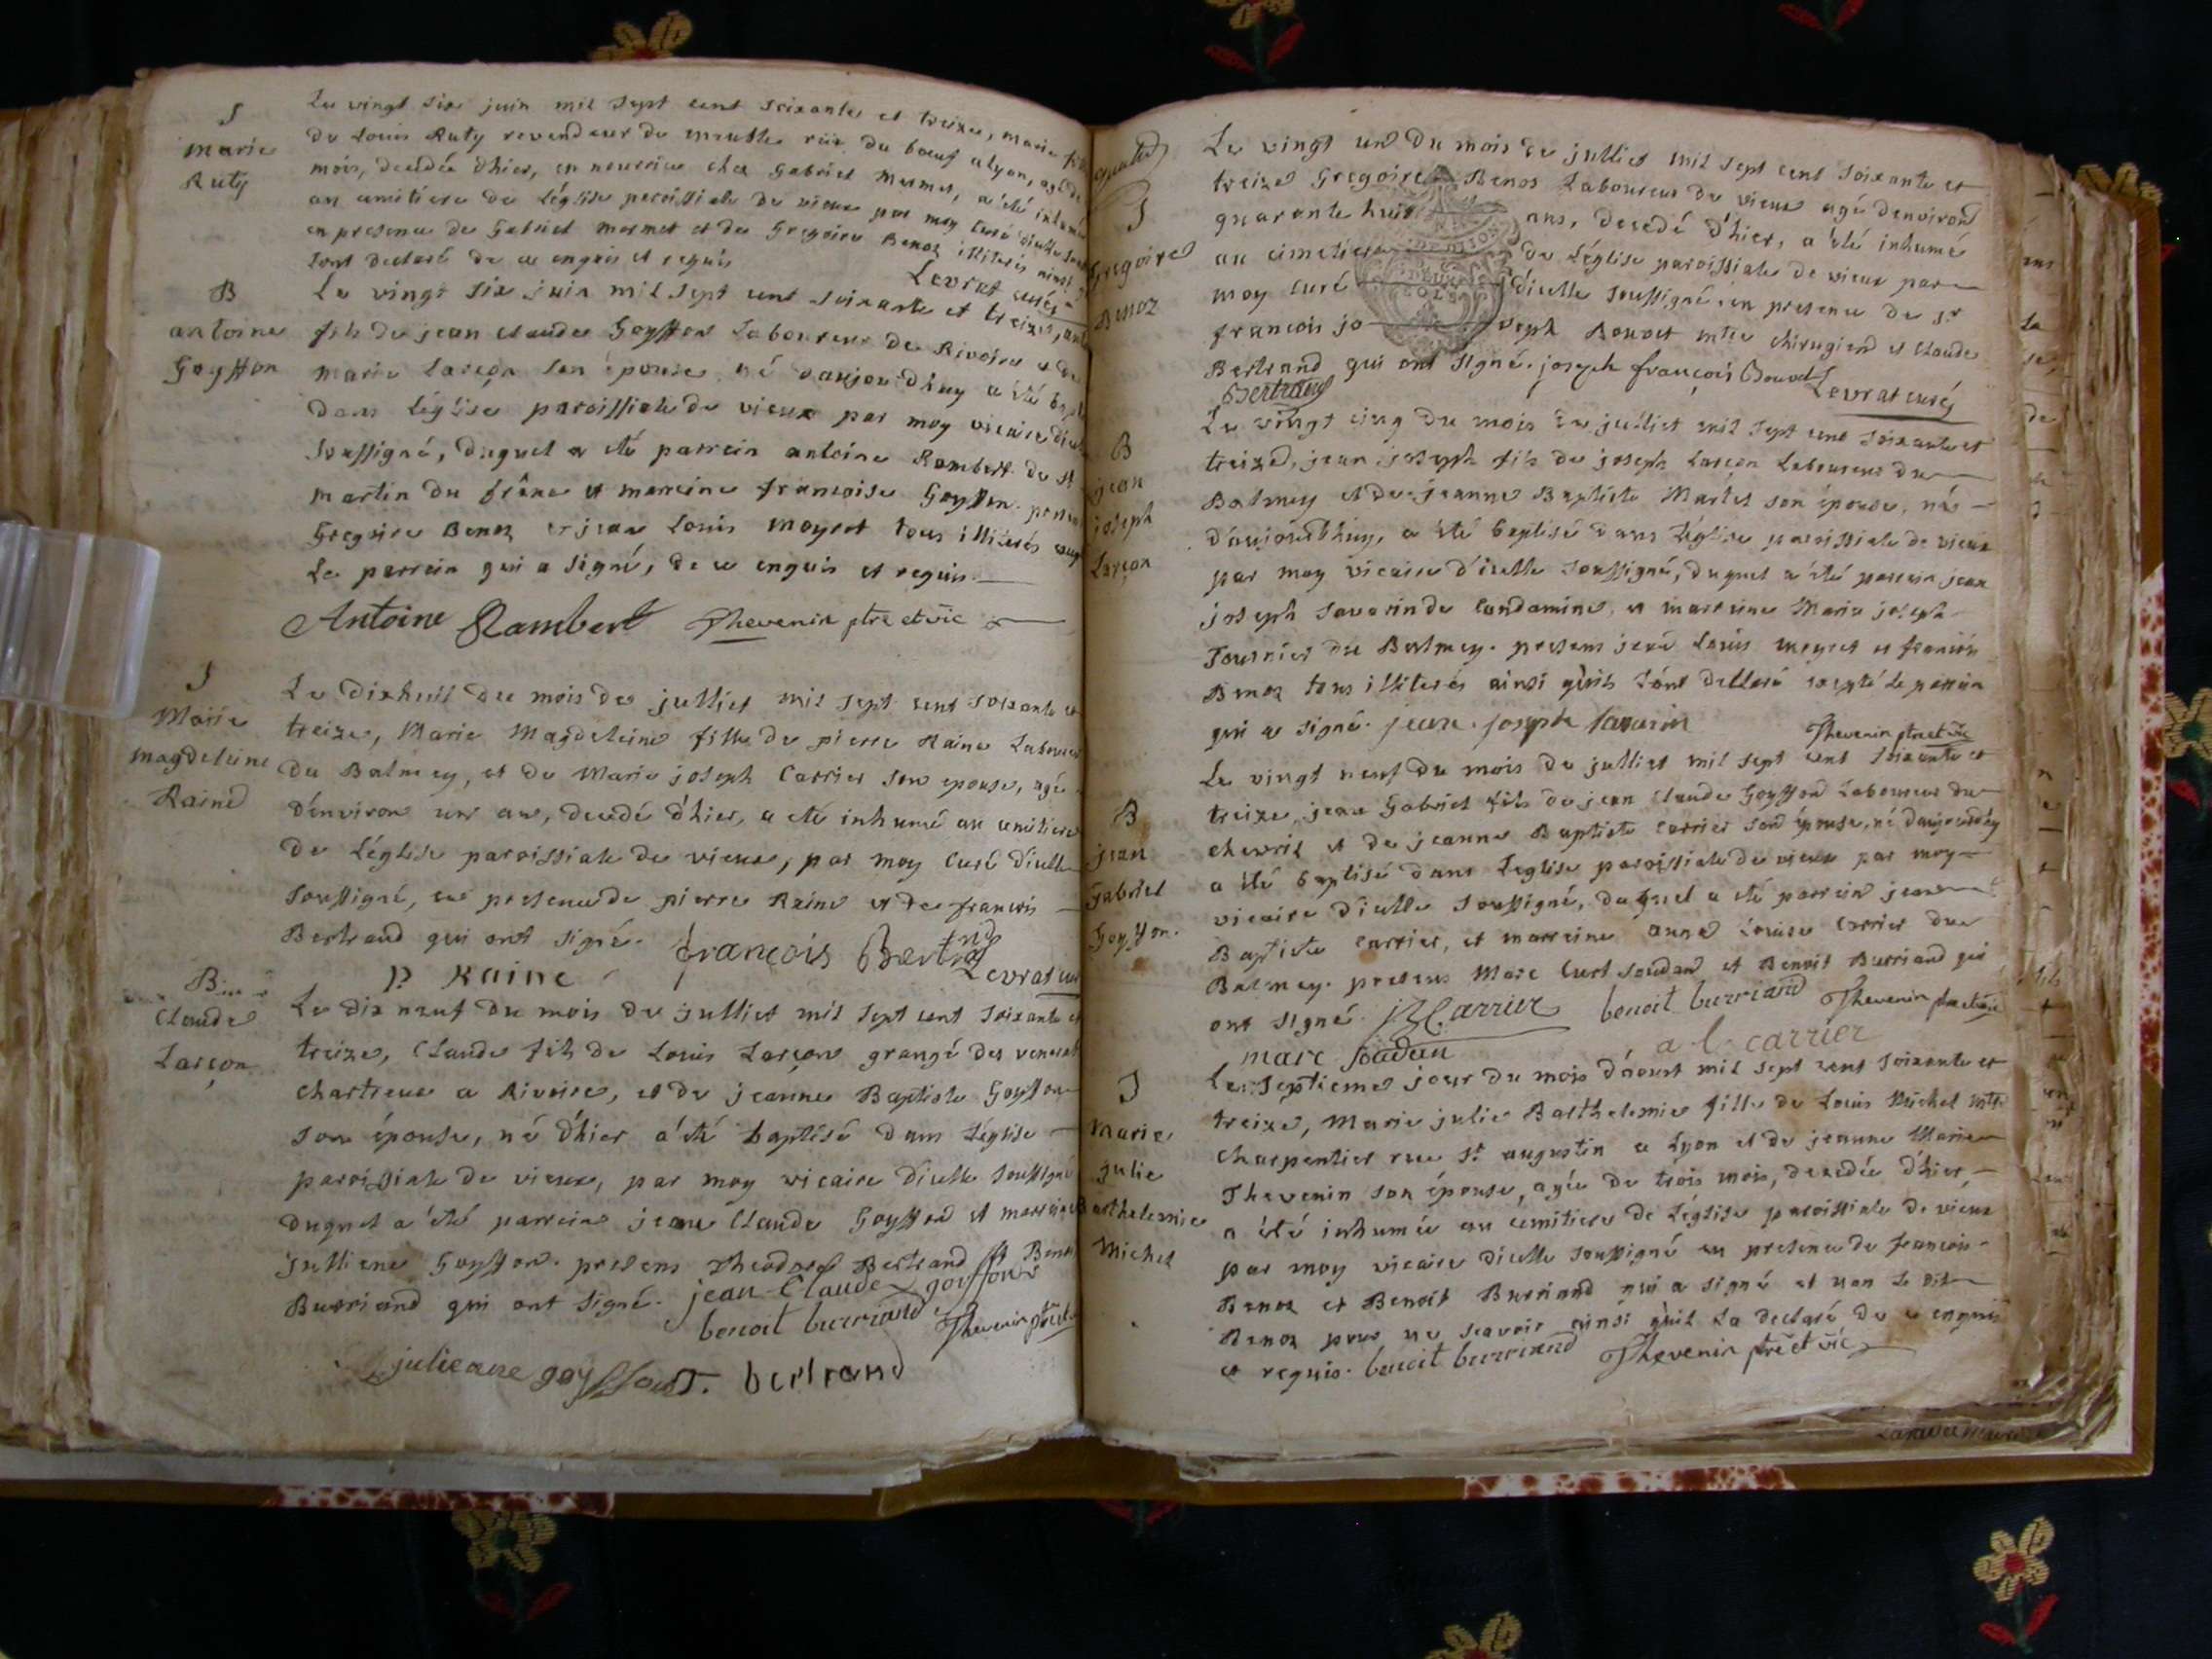 S
Marie
Ruty
Le vingt six juin mil sept cent soixante et treize, marie fille
de Louis Ruty revendeur de meuble rüe du boeuf a lyon, agé de
mois, decedée d'hier, en nourrice chez Gabriel Mermet, a été inhumé
au cimetiere de Léglise paroissiale de vieux par moy curé d'icelle
en presence de Gabriel mermet et de Gregoire Benoz illiterés ainsi
sont declaré de ce enquis et requis
Levrat curé
B
antoine
Goyffon
Le vingt six juin mil sept cent soixante et treize,
fils de jean claude Goyffon Laboureur de Rivoire et de
marie Larçon son épouse né d'aujourdhuy a été
dans Léglise paroissiale de vieux par moy vicaire
soussigné, duquel a eté parrein antoine Rambert de st
martin du frêne et marreine francoise Goyffon.
Gregoire Benoz et jean Louis moyret tous illiterés
Le parrein qui a signé, de ce enquis et requis
Antoine Rambert Thevenin ptre et vic
S
Marie
magdeleine
Raine
Le dixhuit du mois de julliet mil sept cent soixante et
treize, Marie Magdeleine fille de pierre Raine Laboureur
du Balmey, et de Marie joseph Carrier son epouse, agé
d'environ un an, decedé d'hier, a eté inhumé au cimitiere
de Léglise paroissiale de vieux, par moy curé d'icelle
soussigné, en presence de pierre Raine et de francois
Bertrand qui ont signé. françois Bertnd
P. Raine Levrat curé
B
Claude
Larçon
Le dix neuf du mois de julliet mil sept cent soixante et
treize, Claude fils de Louis Larçon grangé des
chartreux a Rivoire, et de jeanne Baptiste Goyffon
son épouse, né d'hier a'eté baptisé dans Léglise
paroissiale de vieux, par moy vicaire d'icelle soussigné
duquel a'eté parrein jean Claude Goyffon et marreine
Julliene Goyffon. presens Theodore Bertrand et Benoit
Burriand qui ont signé. jean Claude goyffon
benoit burriand Thevenin ptre et vic
julieane goyffon T. bertrand
S
Gregoire
Benoz
Le vingt un du mois de julliet mil sept cent soixante et
treize Gregoire Benoz Laboureur de vieux agé denviron
quarante huit ans, decedé d'hier, a'eté inhumé
au cimetiere de Léglise paroissiale de vieux par
moy curé d'icelle soussigné en presence de sr
francois jo seph Bouvet mtre chirugien et Claude
Bertrand qui ont signé. joseph françois Bouvet
Bertrand Levrat curé
B
jean
joseph
Larçon
Le vingt cinq du mois de julliet mil sept cent soixante et
treize, jean joseph fils de joseph Larçon Laboureur du
Balmey et de jeanne Baptiste Martel son épouse, né
d'aujourd'huy, a'eté baptisé dans Léglise paroissiale de vieux
par moy vicaire d'icelle soussigné, duquel a'eté parrein jean
joseph Savarin de Condamine, et marreine Marie joseph
Tournier du Balmey. presens jean Louis moyret et francois
Benoz tous illiterés ainsi qu'ils sont declaré excepté Le parrein
qui a signé. jean. joseph savarin
Thevenin ptre et vic
B
jean
Gabriel
Goyffon.
Le vingt neuf du mois de julliet mil sept cent soixante et
treize, jean Gabriel fils de jean claude Goyffon Laboureur du
chevril et de jeanne Baptiste Carrier son épouse, né daujourdhuy
a été baptisé dans Leglise paroissiale de vieux par moy
vicaire d'icelle soussigné, duquel a eté parrein jean
Baptiste Carrier, et marreine anne Louise Carrier du
Balmey. presens Marc Curt soudan et Benoit Burriand qui
ont signé. JBCarrier benoit burriand Thevenin ptre et vic
marc soudan a l. carrier
S
Marie
julie
Barthelemie
Michel
Le septieme jour du mois d'aoust mil sept cent soixante et
treize, Marie julie Barthelemie fille de Louis Michel mtre
charpentier rue st augustin a Lyon et de jeanne Marie
Thevenin son épouse, agée de trois mois, decedée d'hier,
a été inhumée au cemitiere de Léglise paroissiale de vieux
par moy vicaire d'icelle soussigné en presence de francois
Benoz et Benoit Burriand qui a signé et non le dit
Benoz pour ne scavoir ainsi qu'il La declaré de ce enquis
et requis. benoit burriand Thevenin ptre et vic